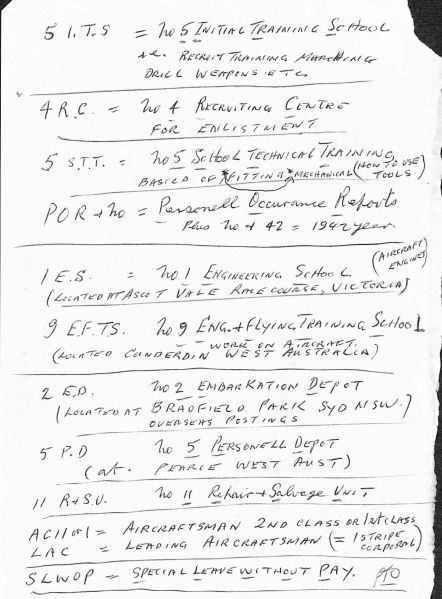 5 I.T.S = No 5 INITIAL TRAINING SCHOOL
i.e. RECRUIT TRAINING MARCHING
DRILL WEAPONS. ETC
4 R.C. = No 4 RECRUITING CENTRE
FOR ENLISTMENT
5 S.T.T. = No 5 SCHOOL TECHNICAL TRAINING
BASIC OF "FITTING" MECHANICAL (HOW TO USE TOOLS)
POR + No = Personell Occurance Reports
Plus No + 42 = 1942 year.
1 E.S. = No 1 ENGINEERING SCHOOL (AIRCRAFT ENGINES)
(LOCATED AT ASCOT VALE RACECOURSE, VICTORIA)
9 E.F.T.S. No 9 ENG. + FLYING TRAINING SCHOOL
WORK ON AIRCRAFT.
(LOCATED CUNDERDIN WEST AUSTRALIA)
2 E.D. No 2 EMBARKATION DEPOT
(LOCATED AT BRADFIELD PARK SYD NSW.)
OVERSEAS POSTINGS
5 P.D No 5 PERSONELL DEPOT
(at. PEARCE WEST AUST)
11 R+S.U. No 11 Repair + Salvage UNIT
AC11 or 1 = AIRCRAFTSMAN 2ND CLASS OR 1st CLASS
LAC = LEADING AIRCRAFTSMAN (= 1 STRIPE CORPORAL)
SLWOP = SPECIAL LEAVE WITHOUT PAY. PTO